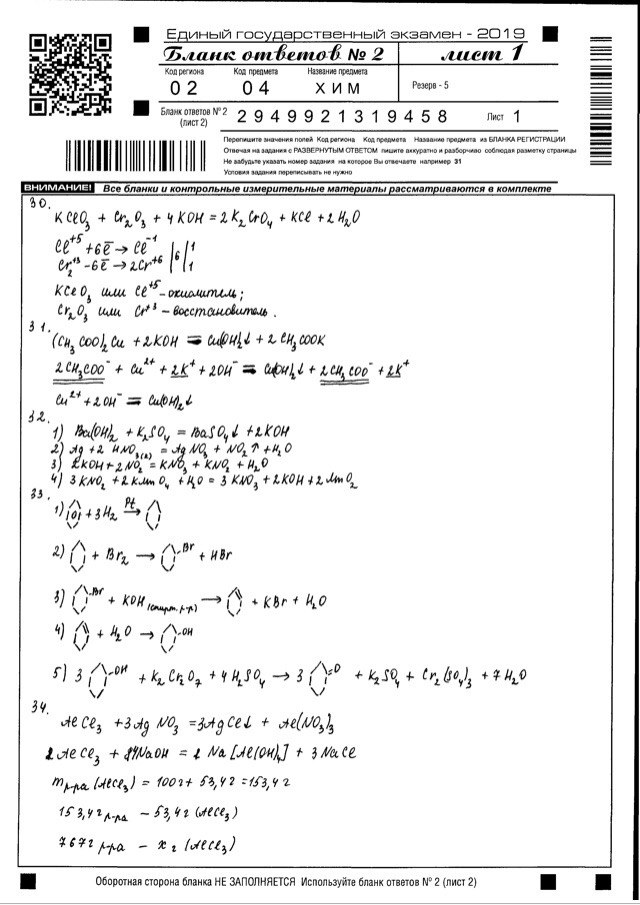 Единый государственный экзамен - 2019
Бланк ответов № 2 лист 1
Код региона Код предмета Название предмета
02 04 ХИМ Резерв - 5
Бланк ответов № 2 (лист 2) 2949921319458 Лист 1
Перепишите значения полей Код региона Код предмета Название предмета из БЛАНКА РЕГИСТРАЦИИ
Отвечая на задания с РАЗВЕРНУТЫМ ОТВЕТОМ пишите аккуратно и разборчиво соблюдая разметку страницы
Не забудьте указать номер задания на которое Вы отвечаете например 31
Условия задания переписывать не нужно
ВНИМАНИЕ! Все бланки и контрольные измерительные материалы рассматриваются в комплекте
30.
KClO₃ + Cr₂O₃ + 4KOH = 2K₂CrO₄ + KCl + 2H₂O
Cl⁺⁵ +6ē → Cl⁻¹ | 6 | 1
Cr₂⁺³ -6ē → 2Cr⁺⁶ | 1
KClO₃ или Cl⁺⁵ - окислитель;
Cr₂O₃ или Cr⁺³ - восстановитель.
31.
(CH₃COO)₂Cu + 2KOH = Cu(OH)₂↓ + 2CH₃COOK
2CH₃COO⁻ + Cu²⁺ + 2K⁺ + 2OH⁻ = Cu(OH)₂↓ + 2CH₃COO⁻ + 2K⁺
Cu²⁺ + 2OH⁻ = Cu(OH)₂↓
32.
1) Ba(OH)₂ + K₂SO₄ = BaSO₄↓ + 2KOH
2) Ag + 2HNO₃(к) = AgNO₃ + NO₂↑ + H₂O
3) 2KOH + 2NO₂ = KNO₃ + KNO₂ + H₂O
4) 3KNO₂ + 2KMnO₄ + H₂O = 3KNO₃ + 2KOH + 2MnO₂
33.
1) + 3H₂ Pt →
2) + Br₂ → Br + HBr
3) Br + KOH (спирт. р-р) → + KBr + H₂O
4) + H₂O → OH
5) 3 OH + K₂Cr₂O₇ + 4H₂SO₄ → 3 =O + K₂SO₄ + Cr₂(SO₄)₃ + 7H₂O
34.
AlCl₃ + 3AgNO₃ = 3AgCl↓ + Al(NO₃)₃
AlCl₃ + 4NaOH = Na[Al(OH)₄] + 3NaCl
m р-ра (AlCl₃) = 100г + 53,4г = 153,4г
153,4г р-ра - 53,4г (AlCl₃)
767г р-ра - x г (AlCl₃)
Оборотная сторона бланка НЕ ЗАПОЛНЯЕТСЯ Используйте бланк ответов № 2 (лист 2)